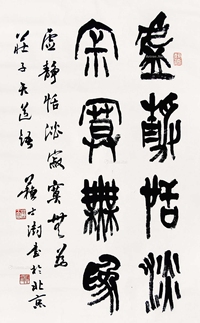 虛靜恬淡
寂寞無為
虛靜恬淡寂寞無為
莊子天道語
蘇士澍書於北京